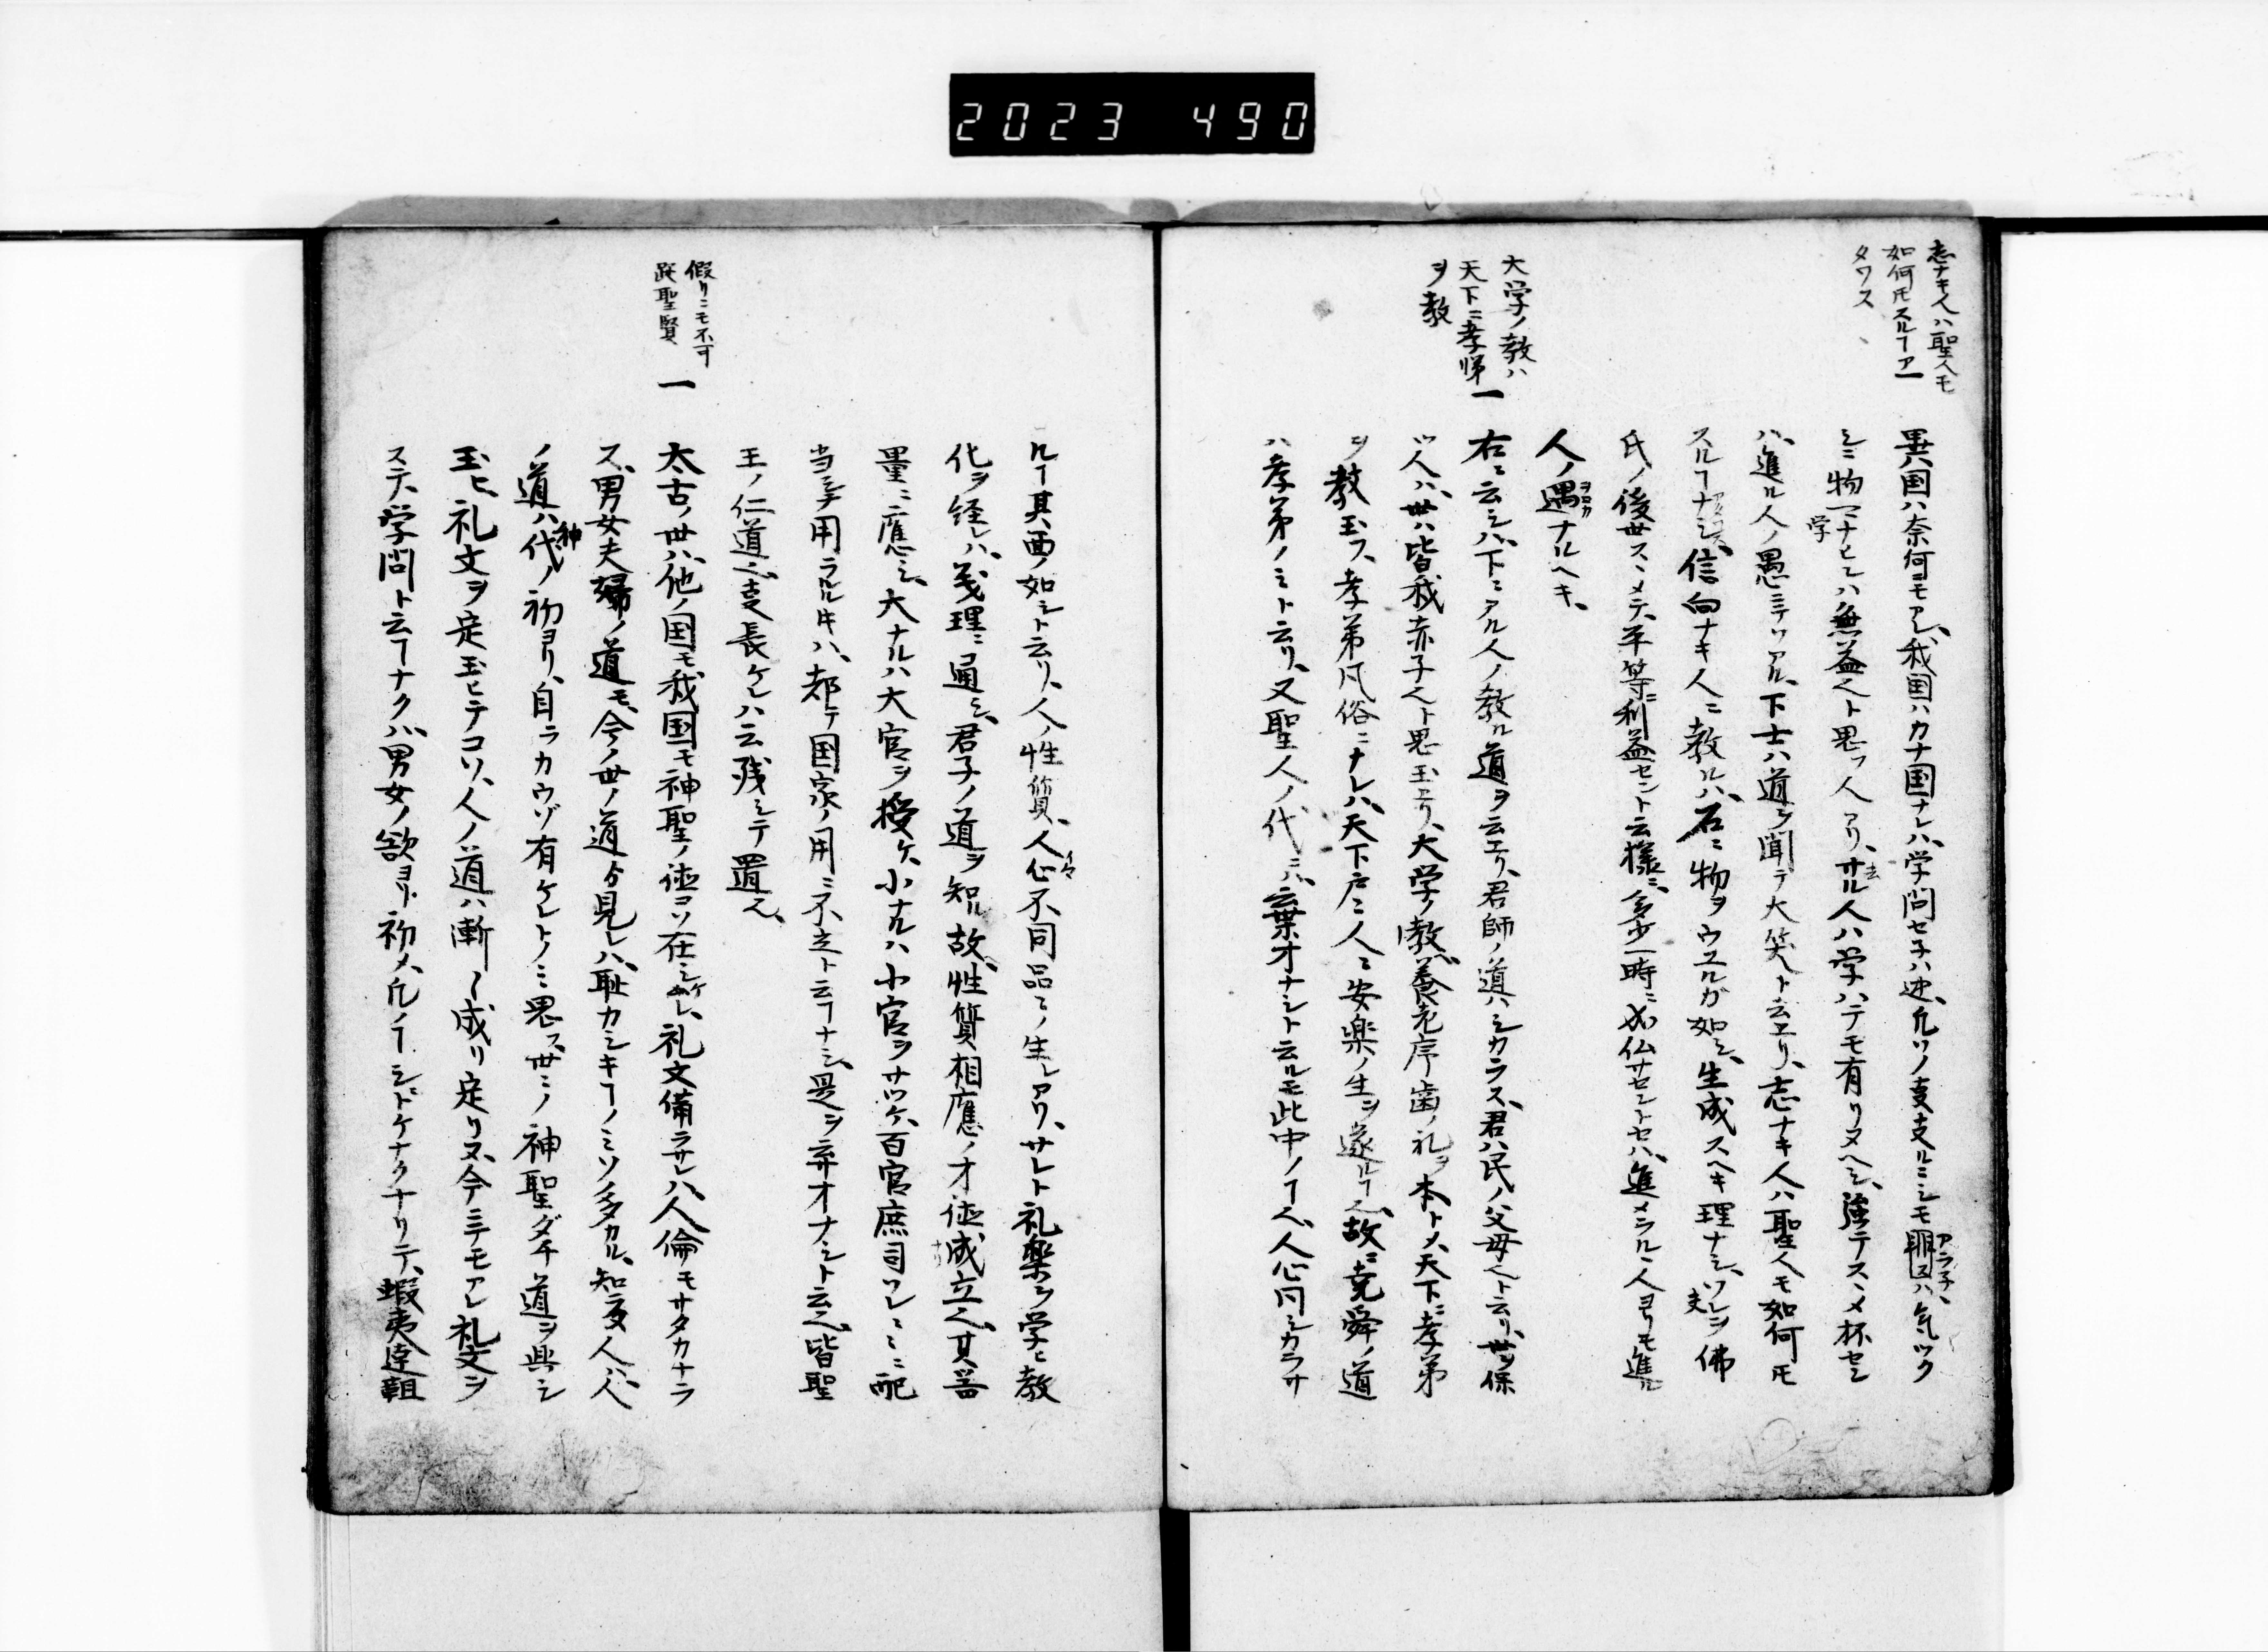 2023 490
志ナキ人ハ聖人モ
如何モスルヿア
タワス
一
異国ハ奈何モアレ、我国ハカナ国ナレハ、学問セ子ハ迚、凡ソノ支支ルニシモ アラ子、ハ気ツク
シミ物マナヒシハ無益ヘト思フ人アリ、サル人ハ学ハテモ有リヌヘシ、強テスヽメ杯セシ
学
ハ、進ル人ノ愚ニテソアル、下士ハ道ヲ聞テ大笑ト云エリ、志ナキ人ハ聖人モ如何モ
スルヿナシ、信向ナキ人ニ教ルハ、石ニ物ヲウユルガ如シ、生成スヘキ理ナシ、ソレヲ佛
氏ノ後世スヽメテ、平等ニ利益セント云様ニ、多少一時ニ成仏サセントセハ、進メラルヽ人ヨリモ進ル
人ノ愚ナルヘキ、
ヲロカ
大学ノ教ハ
天下ニ孝悌
ヲ教
一
右ニ云シハ、下ニアル人ノ教ル道ヲ云エリ、君師ノ道ハシカラス、君ハ民ノ父母ヘト云リ、世ヲ保
ツ人ハ、世ハ皆我赤子ヘト思玉エリ、大学ノ教、養老序歯ノ礼ヲ本トメ、天下ニ孝弟
ヲ教玉フ、孝弟凡俗ニナレハ、天下戸ミ人ミ安楽ノ生ヲ遂ルヿヘ、故ニ堯舜ノ道
ハ孝弟ノミト云リ、又聖人ノ代ニハ、云棄才ナシト云ルモ此中ノヿヘ、人心同シカラサ
ルヿ其面ノ如シト云リ、人ノ性質、人心不同品ミノ生レアリ、サレト礼楽ヲ学ヒ教
化ヲ経レハ、義理ニ通シ、君子ノ道ヲ知ル故、性質相應ノ才徳成立ヘ、其器
量ニ應シ、大ナルハ大官ヲ授ケ、小ナルハ小官ヲサツケ、百官庶司ソレミニ配
当シテ用ラルル牛ハ、都テ国家ノ用ニ不立ト云ヿナシ、是ヲ弃才ナシト云ヘ、皆聖
王ノ仁道ヘ、支長ケレハ云残シテ置ヘ、
假リニモ不可
疑聖賢
一
太古ノ世ハ、他ノ国モ我国モ神聖ノ徳コソ在シケレ、礼文備ラサレハ、人倫モサタカナラ
ス、男女夫婦ノ道モ、今ノ世ノ道ヨリ見レハ、恥カシキヿノミソ多カル、知ヌ人ハ、人
ノ道ハ神代ノ初ヨリ、自ラカウゾ有ケレトノミ思フ、世ミノ神聖ダチ道ヲ興シ
玉ヒ、礼文ヲ定玉ヒテコソ、人ノ道ハ漸〱成リ定リヌ、今ニテモアレ礼文ヲ
ステ、学問ト云ヿナクハ、男女ノ欲ヨリ初メ、凡ノヿシドケナクナリテ、蝦夷達靼